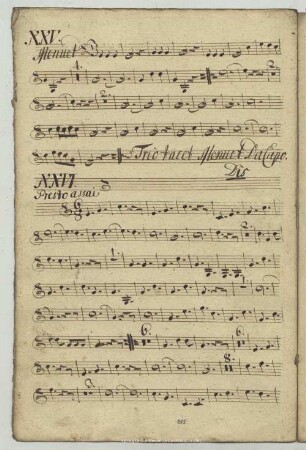 XXV.
Menuet
1.
2.
Trio tacet Menuet Da Capo.
Dis
XXVI
Presto assai
2.
1.
1.
6. 6.
8.
2.